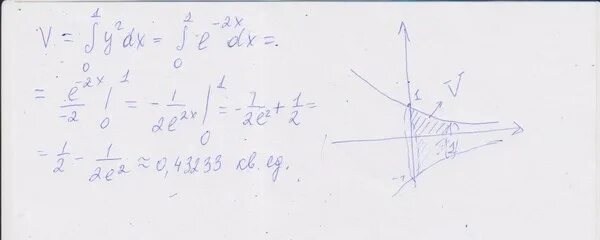 V = ∫₀¹ y² dx = ∫₀¹ e^(-2x) dx =
= e^(-2x)/-2 |₀¹ = -1/(2e^(2x)) |₀¹ = -1/(2e²) + 1/2 =
= 1/2 - 1/(2e²) ≈ 0,43233 кв. ед.
1
V
-1